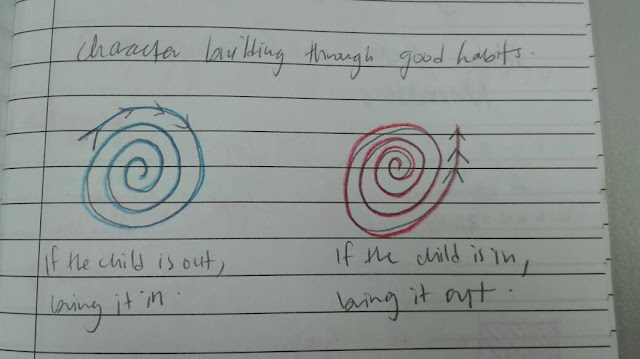 character building through good habits.
If the child is out,
bring it in.
If the child is in,
bring it out.